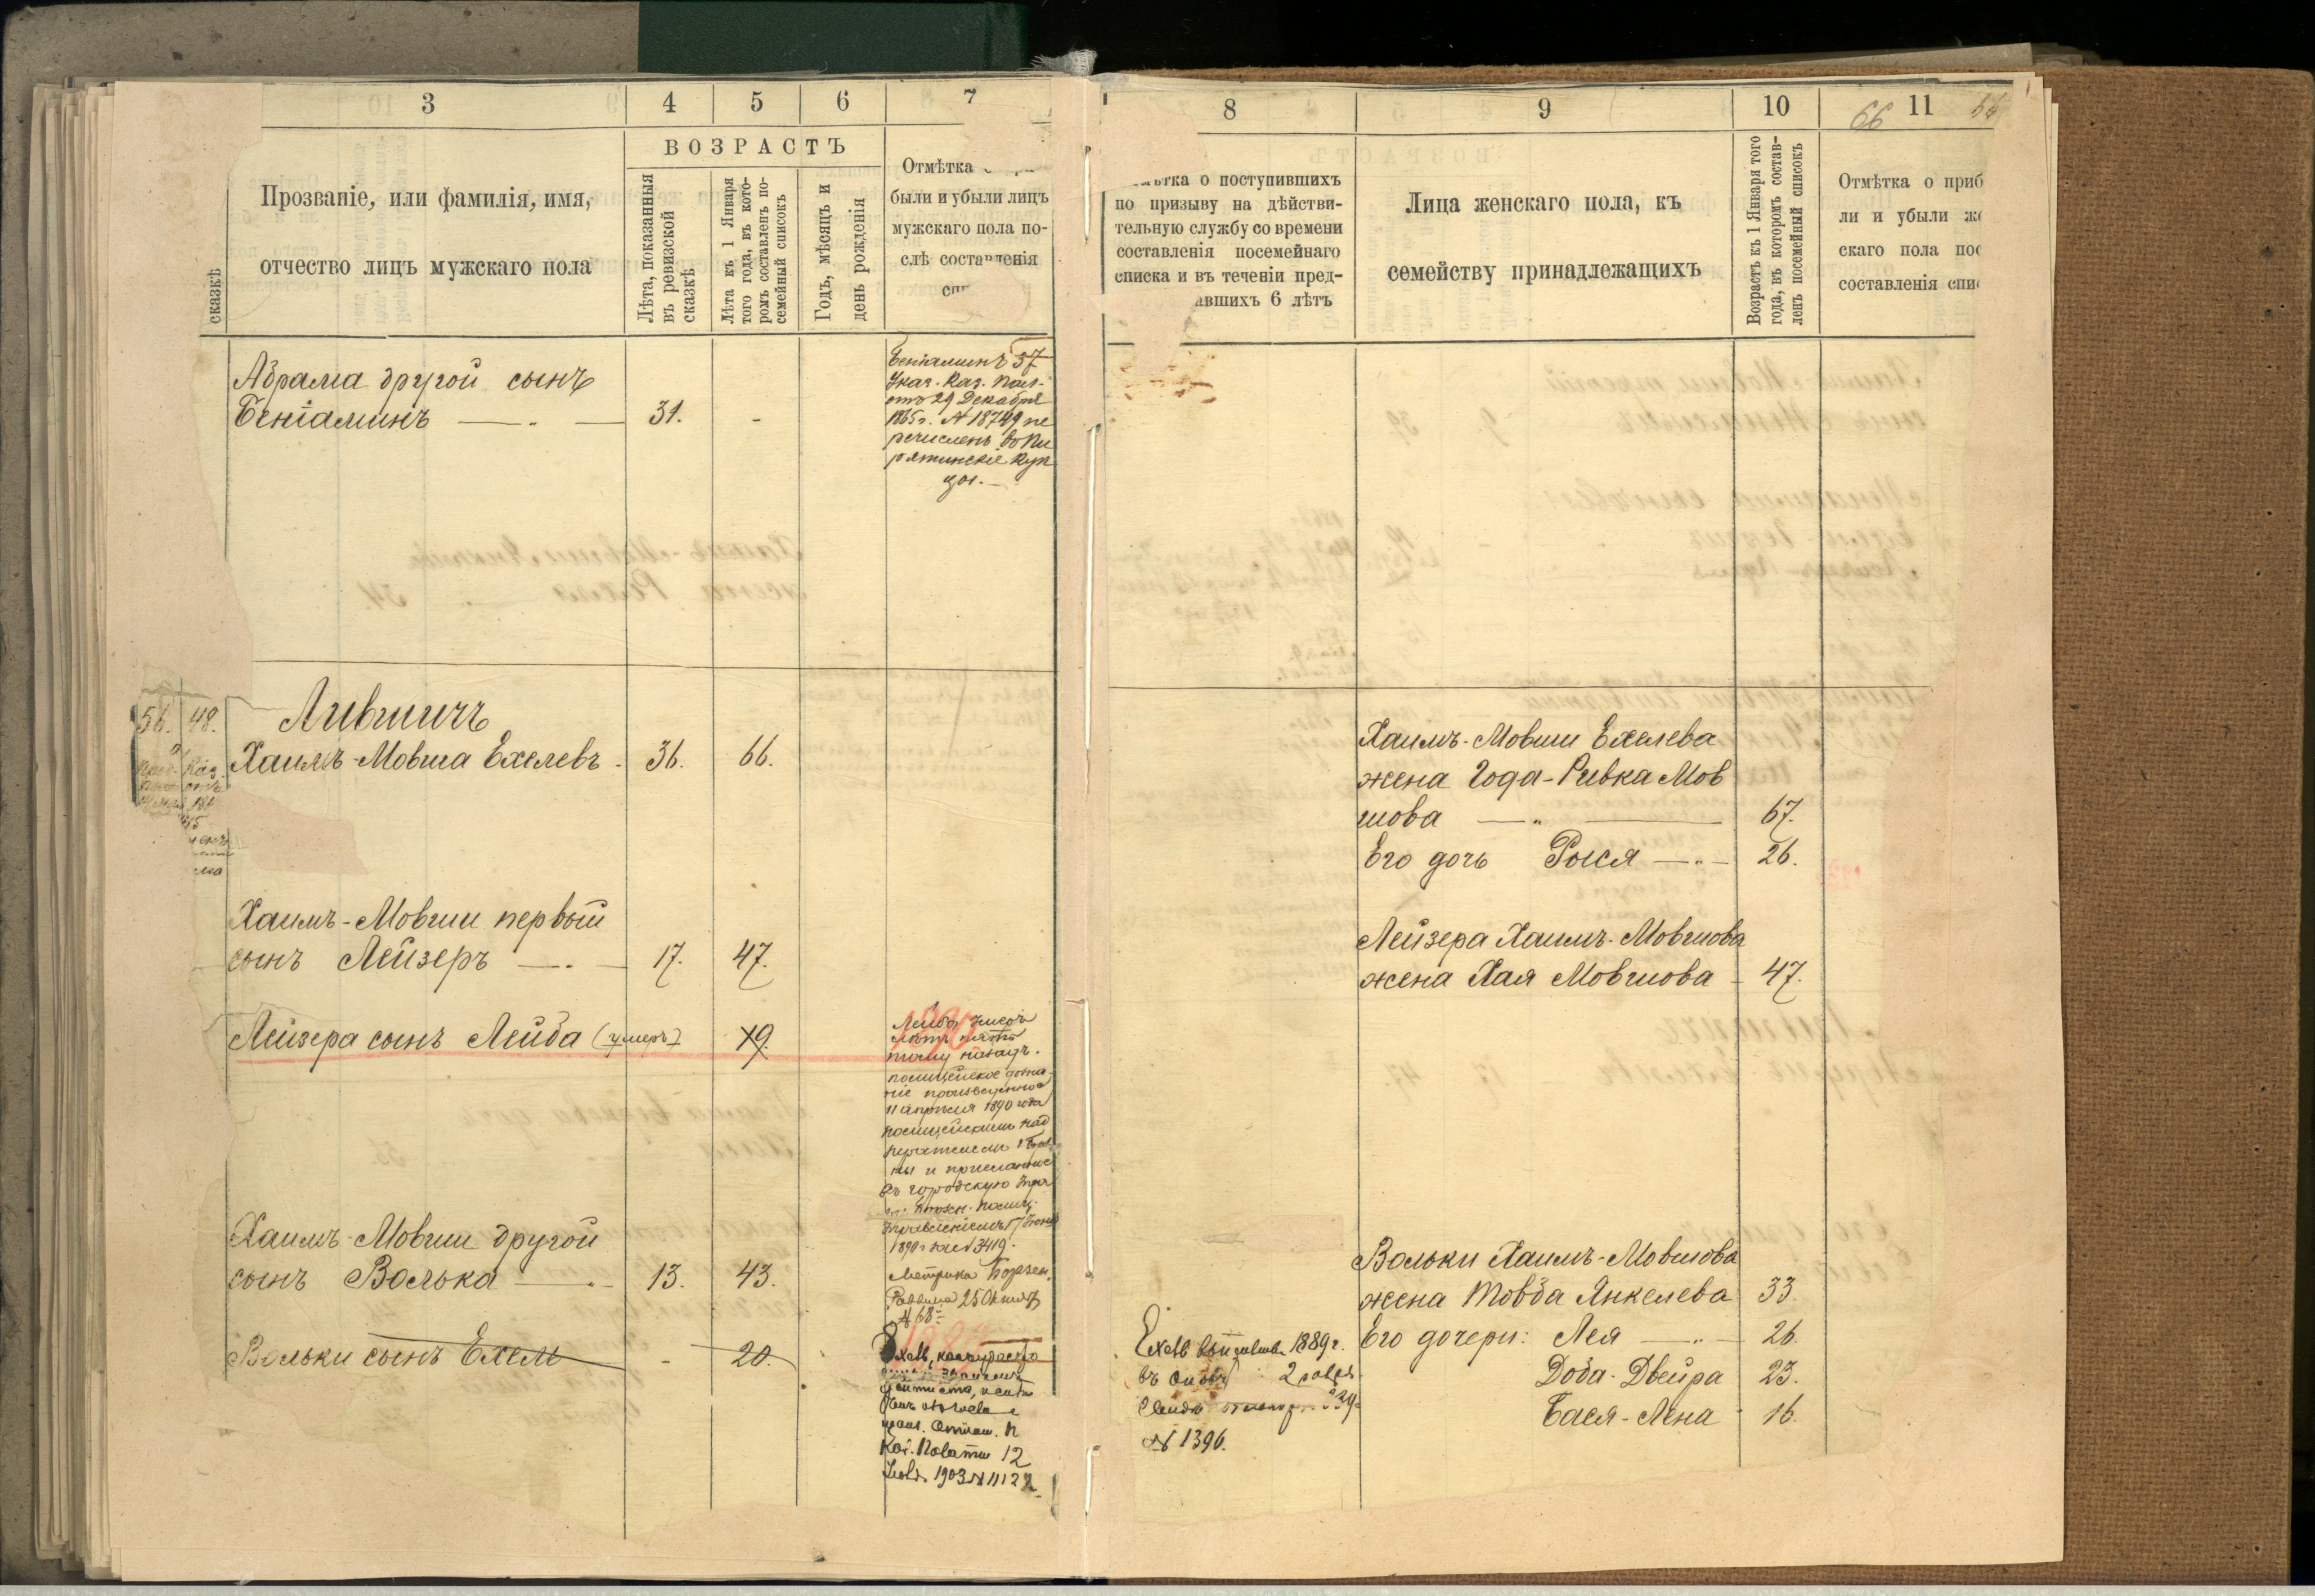 3
4
5
6
7
ВОЗРАСТЪ
сказкѣ
Прозваніе, или фамилія, имя,
отчество лицъ мужскаго пола
Лѣта, показанныя
въ ревизской
сказкѣ
Лѣта къ 1 Января
того года, въ кото-
ромъ составленъ по-
семейный списокъ
Годъ, мѣсяцъ и
день рожденія
Отмѣтка
были и убыли лицъ
мужскаго пола по-
слѣ составленія
Абрама другой сынъ
Беніаминъ 31. -
Беніаминъ 37
Указ. Каз. Пал.
отъ 29 Декабря
1865 г. № 18749 пе
речисленъ въ Пи
рятинскіе куп
цы.
56. 48.
Лившичъ
Хаимъ-Мовша Ехелевъ 36. 66.
Хаимъ-Мовши первый
сынъ Лейзеръ 17. 47.
Лейзера сынъ Лейба (умеръ) 19.
1890
Лейба умеръ
лѣтъ пять
тому назадъ.
полицейское дозна-
ніе произведенное
11 апрѣля 1890 года
полицейскимъ над
зирателемъ
и присланное
въ городскую
1890 г. за № 3419.
Хаимъ-Мовши другой
сынъ Волька 13. 43.
Метрика Борзен.
Раввина 25
№ 68
Вольки сынъ Ехель - 20.
Ехель,
дантиста,
12
1903 № 11122
8
9
10
11
66
о поступившихъ
по призыву на дѣйстви-
тельную службу со времени
составленія посемейнаго
списка и въ теченіи пред-
авшихъ 6 лѣтъ
Лица женскаго пола, къ
семейству принадлежащихъ
Возрастъ къ 1 Января того
года, въ которомъ состав-
ленъ посемейный списокъ
Отмѣтка о приб
ли и убыли же
скаго пола пос
составленія спи
Хаимъ-Мовши Ехелева
жена Года-Ривка Мов
шова 67.
Его дочь Рыся 26.
Лейзера Хаимъ-Мовшова
жена Хая Мовшова 47.
Вольки Хаимъ-Мовшова
жена Товба Янкелева 33.
Его дочери: Лея 26.
Доба-Двейра 23.
Бася-Лена 16.
Ехель 1889 г.
въ
№ 1396.